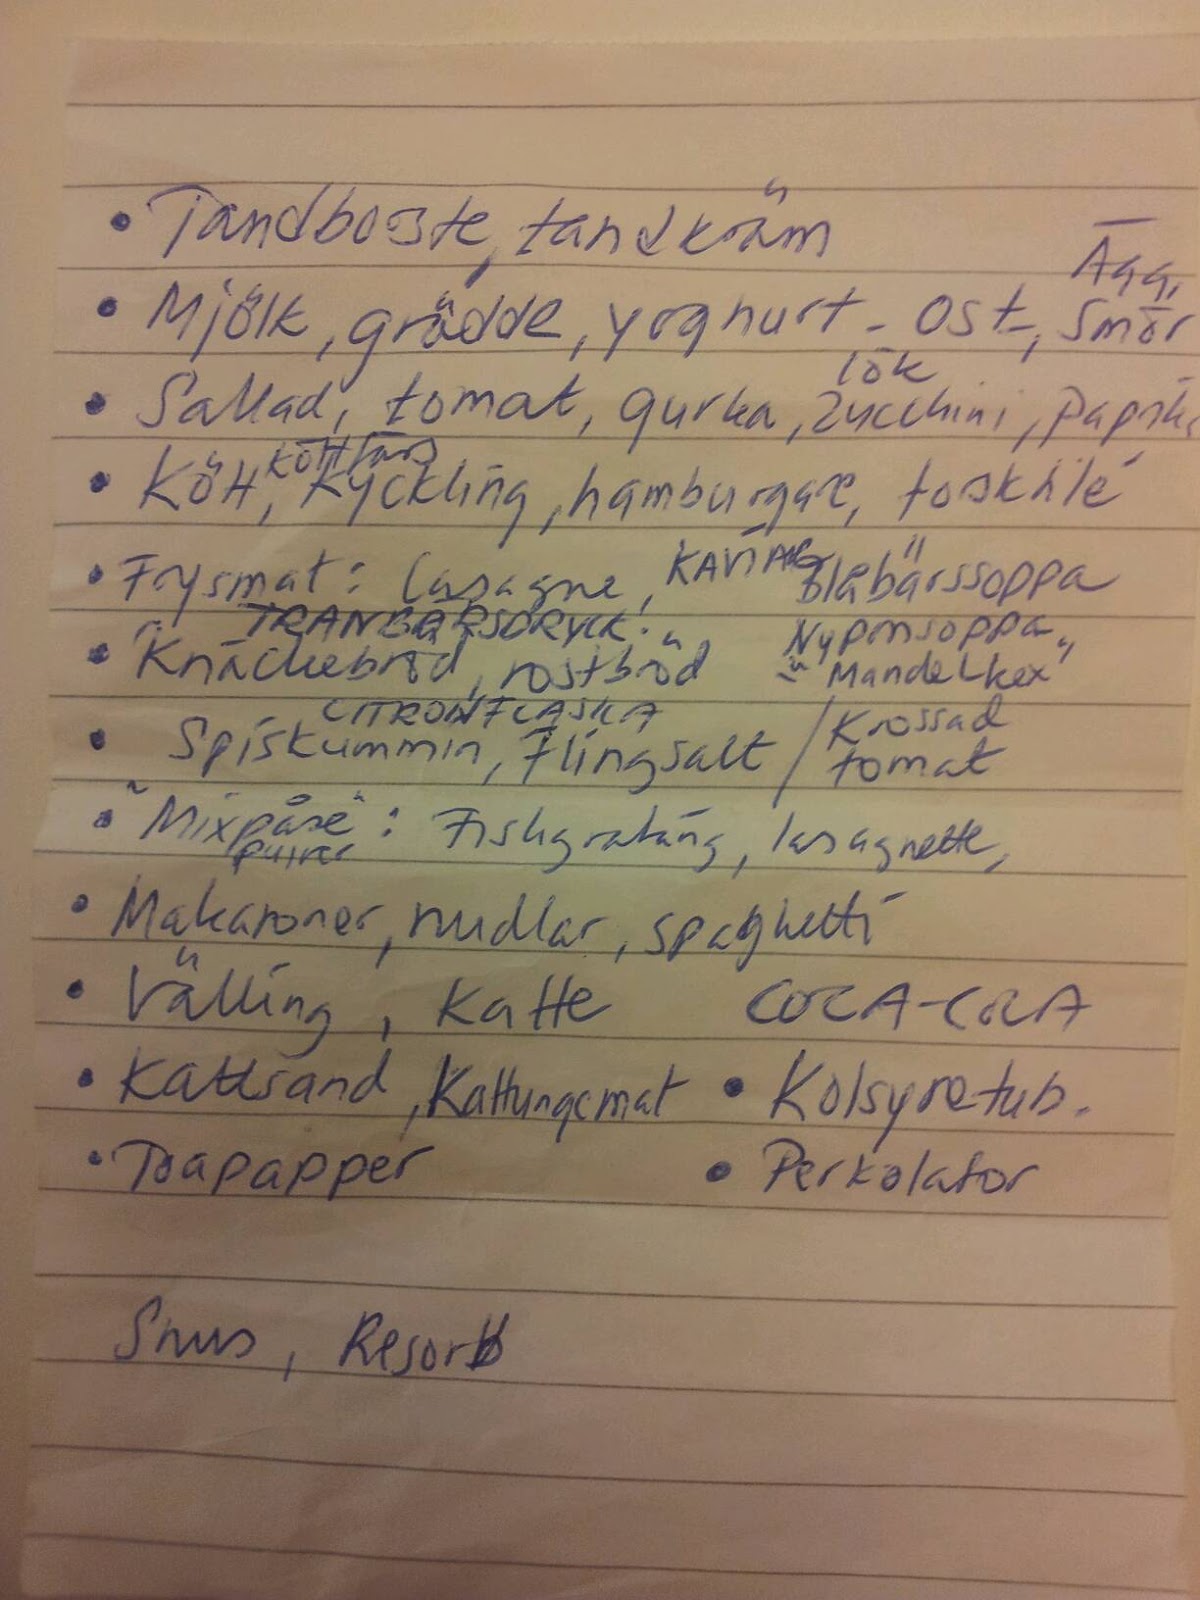 • Tandborste, tandkräm
Ägg,
• Mjölk, grädde, yoghurt - ost-, smör
lök
• Sallad, tomat, gurka, zucchini, paprik
köttfärs
• Kött, kyckling, hamburgare, torskfilé
• Frysmat: lasagne, KAVIAR Blåbärssoppa
TRANBÄRSDRYCK. Nyponsoppa
• "Knäckebröd, rostbröd" "Mandelkex"
CITRONFLASKA / Krossad
• Spiskummin, Flingsalt / tomat
• "Mixpåse": Fiskgratäng, lasagnette,
pulver
• Makaroner, nudlar, spaghetti
• Välling, Kaffe COCA-COLA
• Kattsand, Kattungemat • Kolsyretub.
• Toapapper • Perkolator
Snus, Resorb